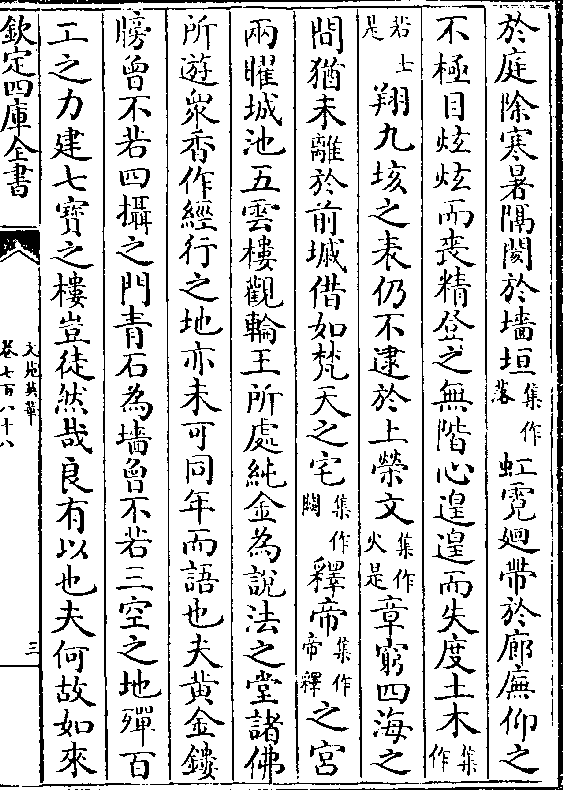 於庭除寒暑隔閡於墻垣集作落虹霓廻帶於廊廡仰之
不極目炫炫而喪精登之無階心遑遑而失度土木集作
若士是翔九垓之表仍不逮於上榮文集作火是章窮四海之
間猶未離於前墄借如梵天之宅集作闕釋帝集作帝釋之宮
兩曜城池五雲樓觀輪王所處純金為說法之堂諸佛
所遊衆香作經行之地亦未可同年而語也夫黄金鏤
牓曾不若四攝之門青石為墻曾不若三空之地殫百
工之力建七寳之樓豈徒然哉良有以也夫何故如來
欽定四庫全書
文苑英華
卷七百八十八
三